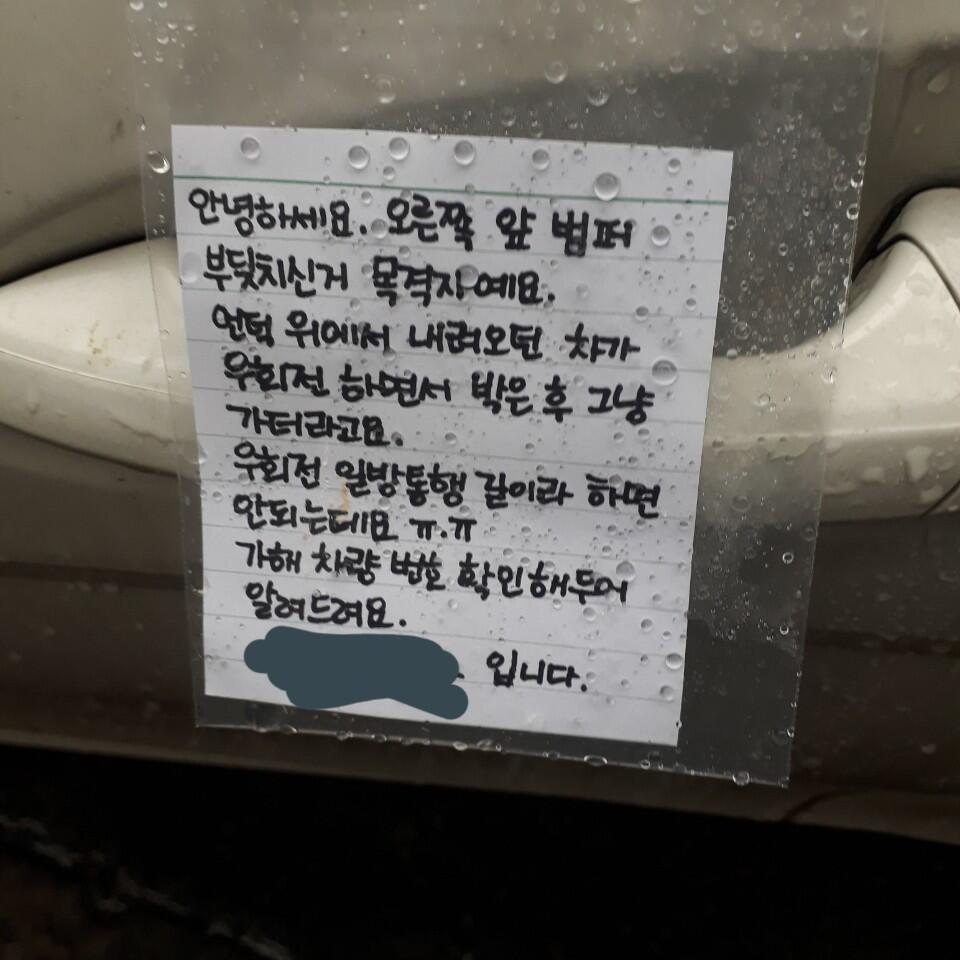 안녕하세요. 오른쪽 앞 범퍼
부딪치신거 목격자예요.
언덕 위에서 내려오던 차가
우회전 하면서 박은 후 그냥
가더라고요.
우회전 일방통행 길이라 하면
안되는데요 ㅠ.ㅠ
가해 차량 번호 확인해두어
알려드려요.
입니다.